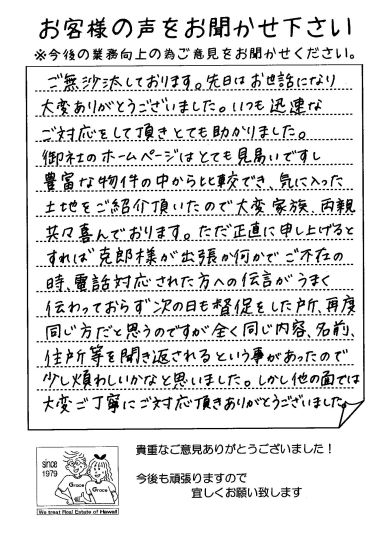 お客様の声をお聞かせ下さい
※今後の業務向上の為ご意見をお聞かせください。
ご無沙汰しております。先日はお世話になり
大変ありがとうございました。いつも迅速な
ご対応をして頂きとても助かりました。
御社のホームページはとても見易いですし
豊富な物件の中から比較でき、気に入った
土地をご紹介頂いたので大変家族、両親
共々喜んでおります。ただ正直に申し上げると
すれば克郎様が出張か何かでご不在の
時、電話対応された方への伝言がうまく
伝わっておらず次の日も督促をした所、再度
同じ方だと思うのですが全く同じ内容、名前、
住所等を聞き返されるという事があったので
少し煩わしいかなと思いました。しかし他の面では
大変ご丁寧にご対応頂きありがとうございました。
since
1979
Grace
Grace
We treat Real Estate of Hawaii
貴重なご意見ありがとうございました！
今後も頑張りますので
宜しくお願い致します